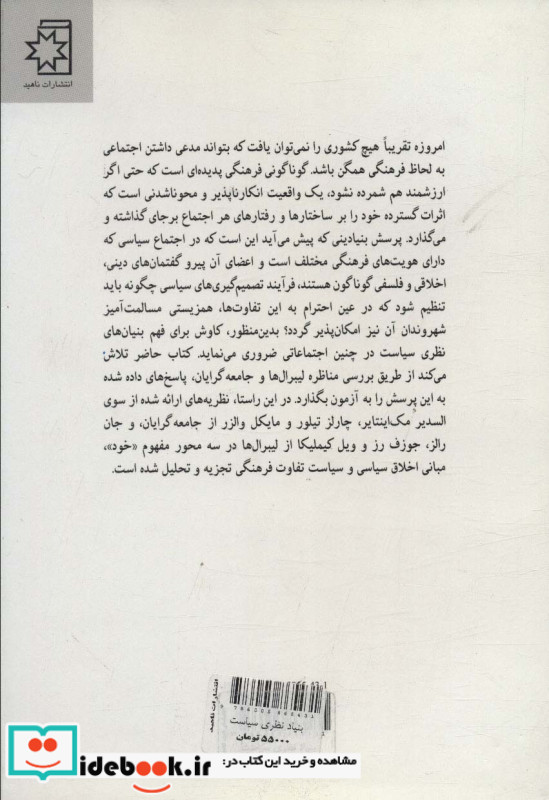 انتشارات ناهید
امروزه تقریباً هیچ کشوری را نمی‌توان یافت که بتواند مدعی داشتن اجتماعی
به لحاظ فرهنگی همگن باشد. گوناگونی فرهنگی پدیده‌ای است که حتی اگر
ارزشمند هم شمرده نشود، یک واقعیت انکارناپذیر و محوناشدنی است که
اثرات گسترده خود را بر ساختارها و رفتارهای هر اجتماع برجای گذاشته و
می‌گذارد. پرسش بنیادینی که پیش می‌آید این است که در اجتماع سیاسی که
دارای هویت‌های فرهنگی مختلف است و اعضای آن پیرو گفتمان‌های دینی،
اخلاقی و فلسفی گوناگون هستند، فرآیند تصمیم‌گیری‌های سیاسی چگونه باید
تنظیم شود که در عین احترام به این تفاوت‌ها، همزیستی مسالمت‌آمیز
شهروندان آن نیز امکان‌پذیر گردد؟ بدین‌منظور، کاوش برای فهم بنیان‌های
نظری سیاست در چنین اجتماعاتی ضروری می‌نماید. کتاب حاضر تلاش
می‌کند از طریق بررسی مناظره لیبرال‌ها و جامعه‌گرایان، پاسخ‌های داده شده
به این پرسش را به آزمون بگذارد. در این راستا، نظریه‌های ارائه شده از سوی
السدیر مک‌اینتایر، چارلز تیلور و مایکل والزر از جامعه‌گرایان، و جان
رالز، جوزف رز و ویل کیملیکا از لیبرال‌ها در سه محور مفهوم «خود»،
مبانی اخلاق سیاسی و سیاست تفاوت فرهنگی تجزیه و تحلیل شده است.
انتشارات ناهید
بنیاد نظری سیاست
۵۵۰۰۰ تومان
مشاهده و خرید این کتاب در:
idebook.ir